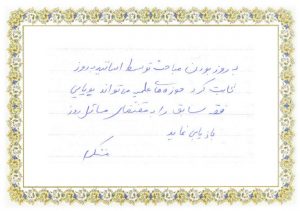 به روز بودن مباحث توسط اساتید به روز
ثابت کرد حوزه های علمیه می تواند پویایی
فقه سابق را در مقتضای مسائل روز
بازیابی نماید